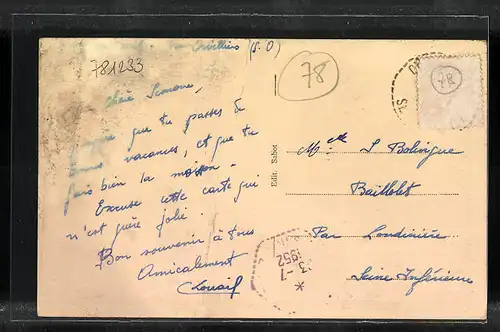 Orvilliers (S. O)
781233
Chère Simone,
que tu passes de
bonnes vacances, et que tu
fais bien la maison.
Excuse cette carte qui
n'est guère jolie.
Bon souvenir à tous
Amicalement
78
Edit. Sabot
78
Melle S Bolingue
Baillolet
Par Londinière
Seine Inférieure
3 -7
1952
*